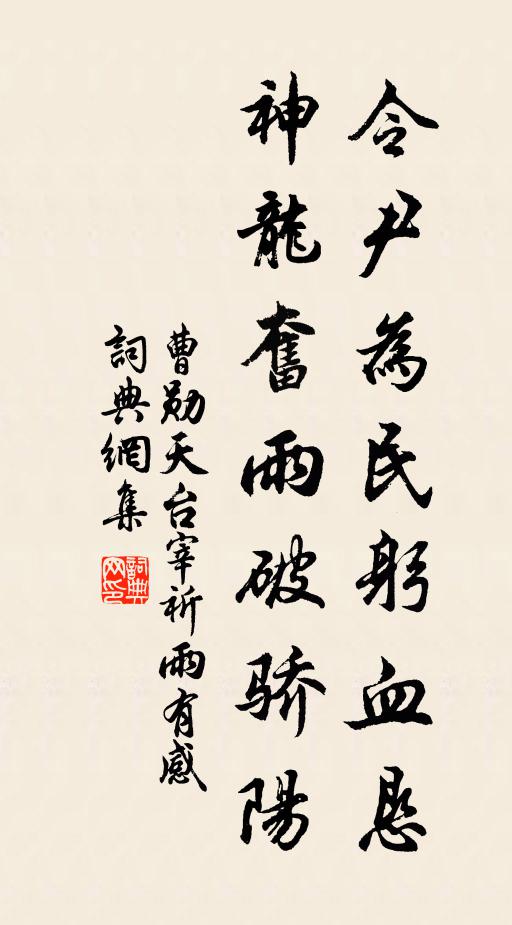 令尹為民躬血恳
神龍奮雨破骄陽
曹勋天台宰祈雨有感
詞典網集
詞典网印